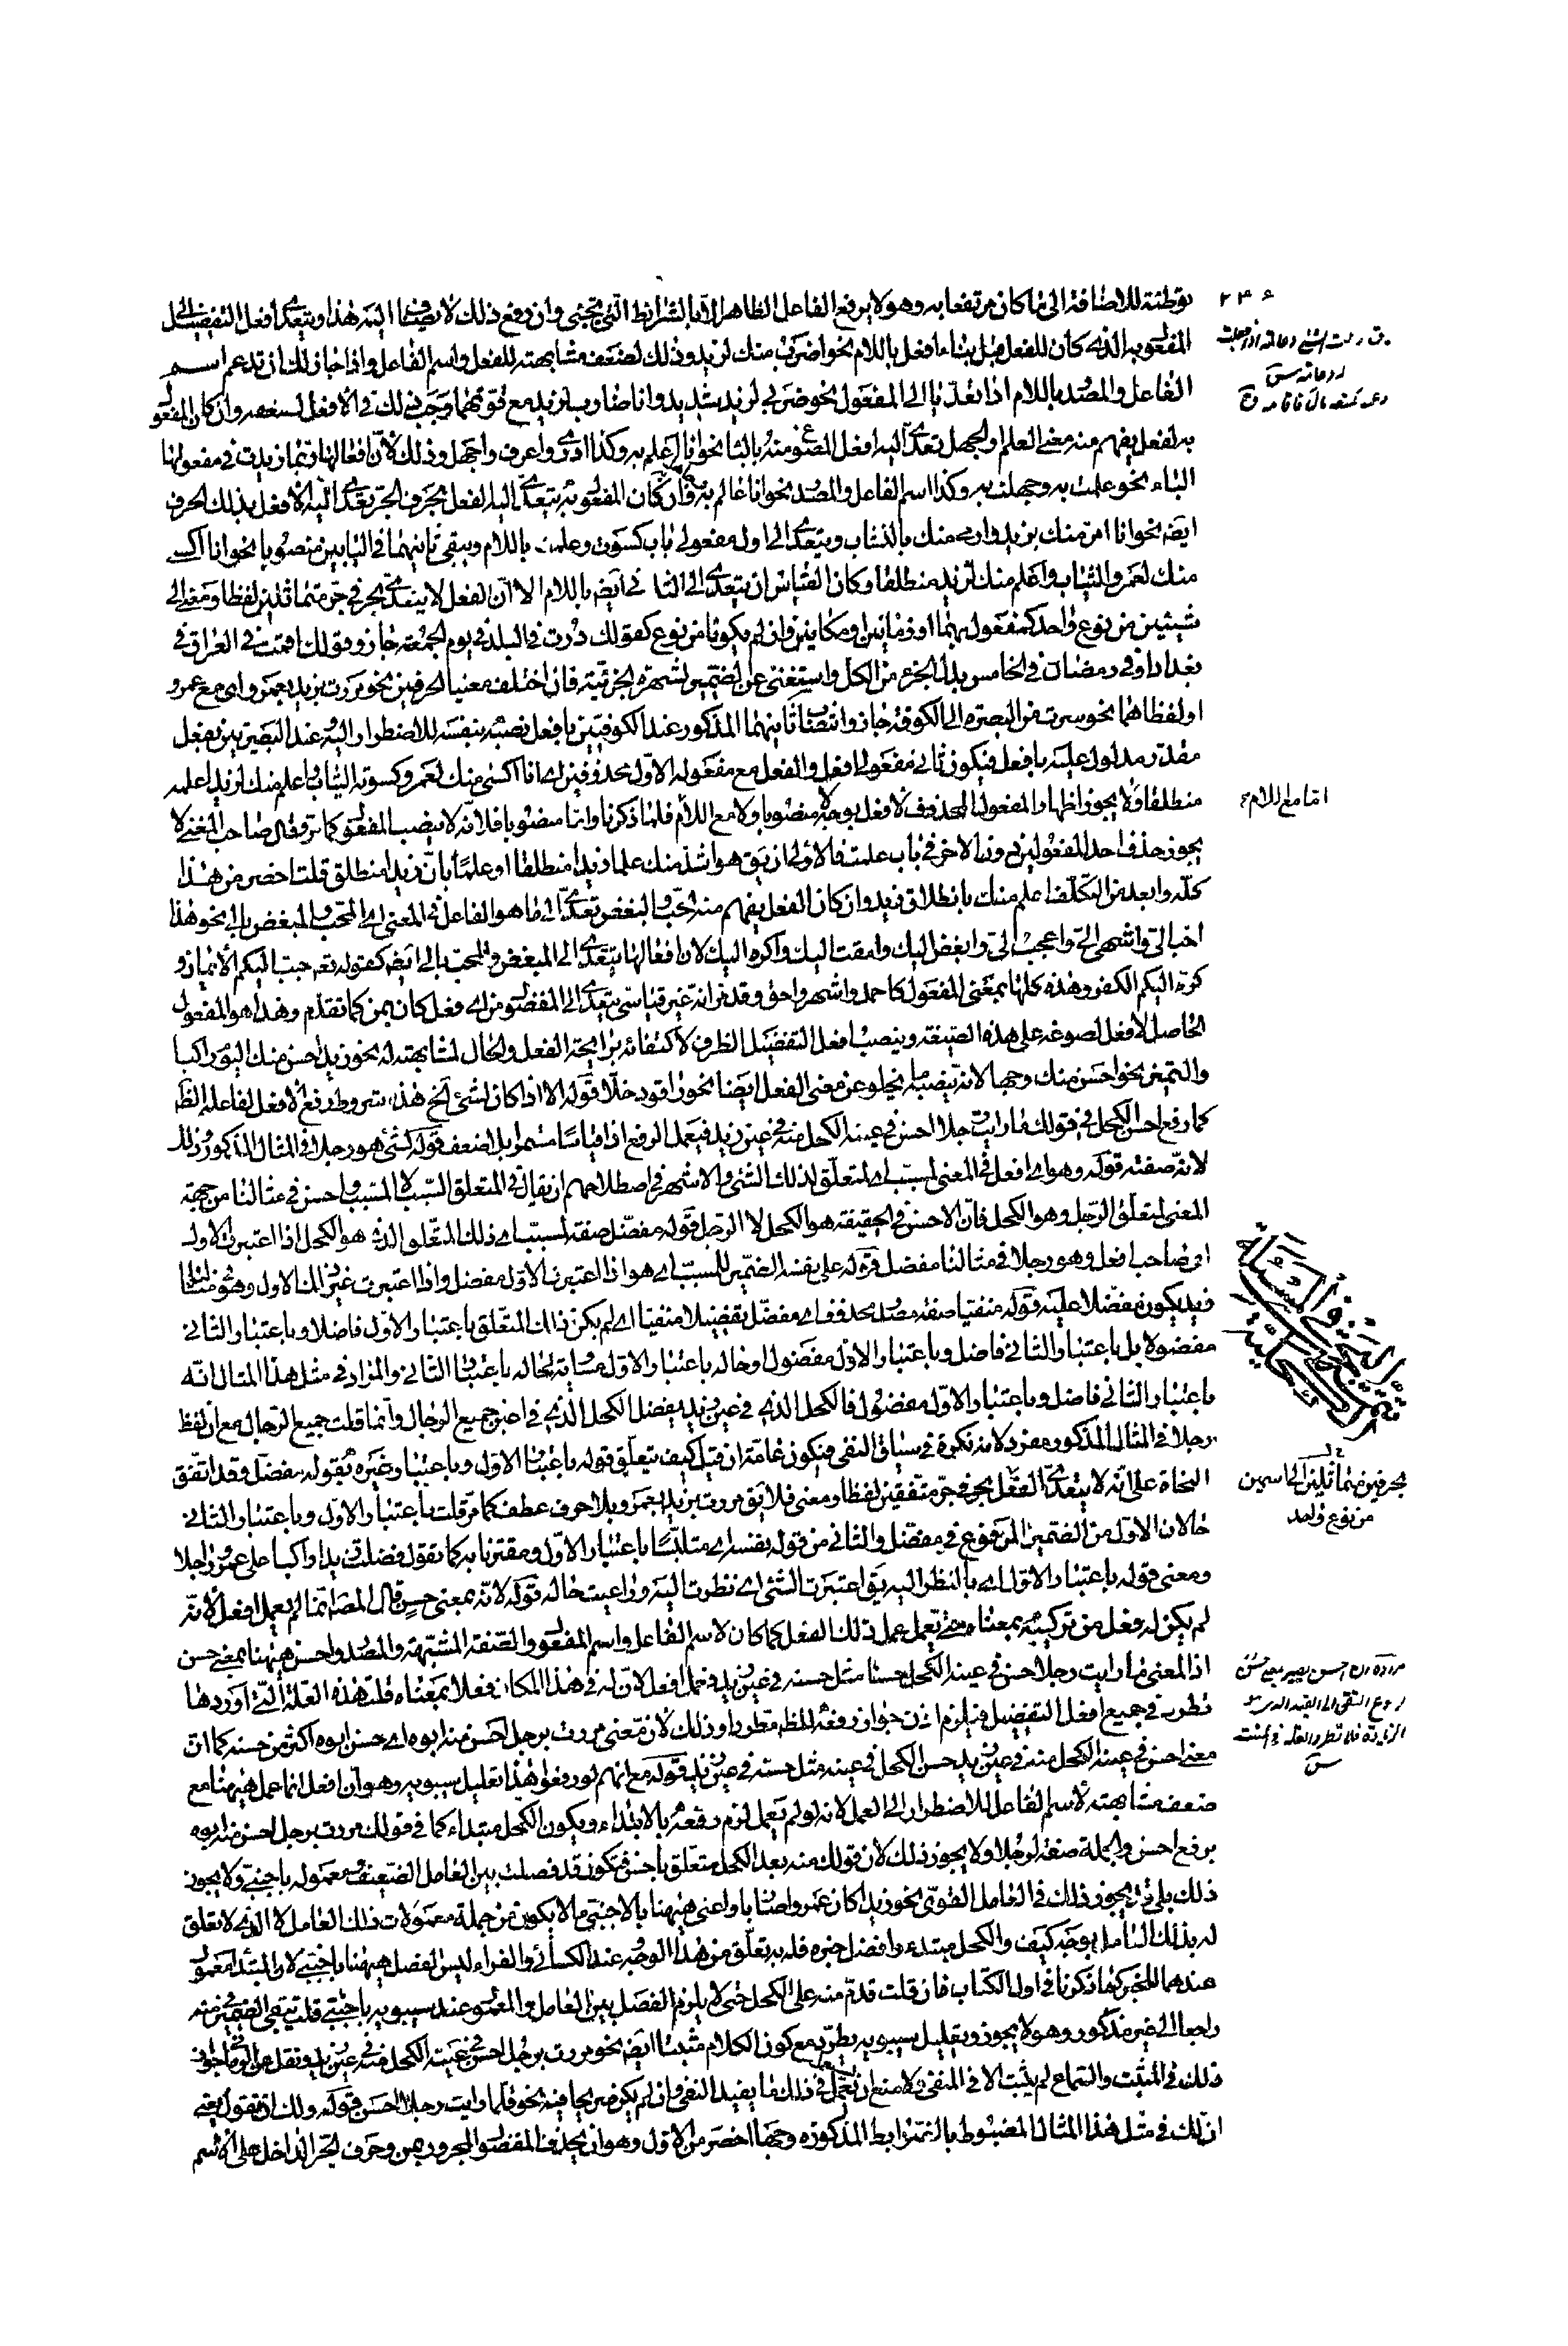 توطئة للاضافة الى ما كان مرتفعا به وهو لا يرفع الفاعل الظاهر الا بالشرايط التى تجئ وان رفع ذلك لا يضاف اليه هذا ويتعدى افعل التفضيل الى
المفعول به الذى كان للفعل قبل بناء افعل باللام نحو اضرب منك لزيد وذلك لضعف مشابهته للفعل واسم الفاعل واذا جاز لك ان تدعم اسم
الفاعل والمصدر باللام اذا تعديا الى المفعول نحو ضربى لزيد شديد وانا ضارب لزيد مع قوتهما وجب ذلك فى الافعل لضعفه وان كان المفعول
به لفعل يفهم منه معنى العلم او الجهل تعدى اليه افعل المصوغ منه بالباء نحو انا اعلم به وكذا ادرى واعرف واجهل وذلك لان افعالها ربما زيدت فى مفعولها
الباء نحو علمت به وجهلت به وكذا اسم الفاعل والمصدر نحو انا عالم به وان كان المفعول به يتعدى اليه الفعل بحرف الجر تعدى اليه الافعل بذلك الحرف
ايضا نحو انا امر منك بزيد وارمى منك بالنشاب ويتعدى الى اول مفعولى باب كسوت وعلمت باللام ويبقى ثانيهما فى البابين منصوبا نحو انا اكسى
منك لعمرو الثياب واعلم منك لزيد منطلقا وكان القياس ان يتعدى الى الثانى ايضا باللام الا ان الفعل لا يتعدى بحرفى جر متماثلين لفظا ومعنى الى
شيئين من نوع واحد كمفعول بهما او زمانين او مكانين وان لم يكونا من نوع كقولك درت فى البلد فى يوم الجمعة جاز وقولك اقمت فى العراق فى
بغداد او فى رمضان فى الخامس بدل الجزء من الكل واستغنى عن الضمير لشهرة الجزئية فان اختلف معنيا الحرفين نحو مررت بزيد بعمرو اى مع عمرو
او لفظاهما نحو سرت من البصرة الى الكوفة جاز وانتصاب ثانيهما المذكور عند الكوفيين بافعل نصبه بنفسه للاضطرار اليه عند البصريين بفعل
مقدر مدلول عليه بافعل فيكون ثانى مفعولى افعل والفعل مع مفعوله الاول محذوفين اى انا اكسى منك لعمرو كسوته الثياب واعلم منك لزيد اعلمه
منطلقا ولا يجوز اظهار المفعول المحذوف لافعل بوجه لا منصوبا ولا مع اللام فلما ذكرنا واما منصوبا فلانه لا ينصب المفعول كما مر وقال صاحب المغنى لا
يجوز حذف احد المفعولين دون الاخر فى باب علمت فالاولى ان يق هو اشد منك علما زيدا منطلقا او علما بان زيدا منطلق قلت اخصر من هذا
كله وابعد من التكلف اعلم منك بانطلاق زيد وان كان الفعل يفهم منه الحب والبغض تعدى الى ما هو الفاعل فى المعنى اى المحب والمبغض بالى نحو هذا
احب الى واشهى الى واعجب الى وابغض اليك وامقت اليك واكره اليك لان افعالها يتعدى الى المبغض والمحب بالى ايضا كقوله تعه حبب اليكم الايمان و
كره اليكم الكفر وهذه كلها بمعنى المفعول كاحمد واشهر واحق وقد مر انه غير قياسى يتعدى الى المفضول من اى فعل كان بمن كما تقدم وهذا هو المفعول
الحاصل لافعل لصوغه على هذه الصيغة وينصب افعل التفضيل الظرف لاكتفائه برايحة الفعل والحال لمشابهته له نحو زيد احسن منك اليوم راكبا
والتميز نحو احسن منك وجها لانه ينصبه ما يخلو عن معنى الفعل ايضا نحو راقود خلا قوله الا اذا كان لشئ الخ هذه شروط رفع الافعل لفاعله الظ
كما رفع احسن الكحل فى قولك ما رايت رجلا احسن فى عينه الكحل منه فى عين زيد فيعمل الرفع اذا قياسا مستمرا بلا ضعف قوله لشئ هو رجلا فى المثال المذكور وذلك
لانه صفته قوله وهو اى افعل فى المعنى لمسبب اى لمتعلق لذلك الشئ والاشهر فى اصطلاحهم ان يقال فى المتعلق السبب لا المسبب واحسن فى مثالنا من جهة
المعنى لمتعلق الرجل وهو الكحل فان الاحسن فى الحقيقة هو الكحل لا الرجل قوله مفضل صفة لمسبب اى ذلك المتعلق الذى هو الكحل اذا اعتبرت الاول
اى صاحب افعل وهو رجلا فى مثالنا مفضل قوله على نفسه الضمير للمسبب اى هو اذا اعتبرت الاول مفضل واذا اعتبرت غير ذلك الاول وهو فى مثالنا
زيد يكون مفضلا عليه قوله منفيا صفة مصدر محذوف اى مفضل تفضيلا منفيا اى لم يكن ذلك المتعلق باعتبار الاول فاضلا وباعتبار الثانى
مفضولا بل باعتبار الثانى فاضل وباعتبار الاول مفضول او حاله باعتبار الاول مساوية لحاله باعتبار الثانى والمراد فى مثل هذا المثال انه
باعتبار الثانى فاضل وباعتبار الاول مفضول فالكحل الذى فى عين زيد يفضل الكحل الذى فى اعين جميع الرجال وانما قلت جميع الرجال مع ان لفظ
رجلا فى المثال المذكور مفرد لانه نكرة فى سياق النفى فيكون عامة ان قيل كيف يتعلق قوله باعتبار الاول وباعتبار غيره بقوله مفضل وقد اتفق
النحاة على انه لا يتعدى الفعل بحرفى جر متفقين لفظا ومعنى فلا يق مررت بزيد بعمرو بلا حرف عطف كما مر قلت باعتبار الاول وباعتبار الثانى
حالان الاول من الضمير المرفوع فى مفضل والثانى من قوله نفسه اى متلبسا باعتبار الاول ومقترنا به كما تقول فضلت زيدا راكبا على عمرو راجلا
ومعنى قوله باعتبار الاول اى بالنظر اليه يق اعتبرت الشئ اى نظرت اليه وراعيت حاله قوله لانه بمعنى حسن قال المصه انما لم يعمل افعل لانه
لم يكن له فعل من تركيبه بمعناه حتى يعمل عمل ذلك الفعل كما كان لاسم الفاعل واسم المفعول والصفة المشبهة والمصدر واحسن ههنا بمعنى حسن
اذ المعنى ما رايت رجلا حسن فى عينه الكحل حسنا مثل حسنه فى عين زيد فعمل افعل لان له فى هذا المكان فعلا بمعناه قلت هذه العلة التى اوردها
تطرد فى جميع افعل التفضيل فيلزم اذن جواز رفعه الظه مطردا وذلك لان معنى مررت برجل احسن منه ابوه اى حسن ابوه اكثر من حسنه كما ان
معنى احسن فى عينه الكحل منه فى عين زيد حسن الكحل فى عينه مثل حسنه فى عين زيد قوله مع انهم لو رفعوا هذا تعليل سيبويه وهو ان افعل انما عمل ههنا مع
ضعف مشابهته لاسم الفاعل للاضطرار الى العمل لانه لو لم يعمل لزم رفعه بالابتداء ويكون الكحل مبتداء كما فى قولك مررت برجل احسن منه ابوه
برفع احسن والجملة صفة لرجلا ولا يجوز ذلك لان قولك منه بعد الكحل متعلق باحسن فتكون قد فصلت بين العامل الضعيف ومعموله باجنبى ولا يجوز
ذلك بلى يجوز ذلك فى العامل القوى نحو زيدا كان عمرو ضاربا واعنى ههنا بالاجنبى ما لا يكون من جملة معمولات ذلك العامل لا الذى لا تعلق
له بذلك العامل بوجه كيف والكحل مبتدء وافضل خبره فله به تعلق من هذا الوجه عند الكسائى والفراء ليس الفصل ههنا باجنبى لان المبتدأ معمول
عندهما للخبر كما ذكرنا فى اول الكتاب فان قلت قدم منه على الكحل حتى لا يلزم الفصل بين العامل والمعمول عند سيبويه باجنبى قلت يبقى الضمير فى منه
راجعا الى غير مذكور وهو لا يجوز وتعليل سيبويه يطرد مع كون الكلام مثبتا ايضا نحو مررت برجل احسن فى عينه الكحل منه فى عين زيد ونقل عن الرمانى جواز
ذلك فى المثبت والسماع لم يثبت الا فى المنفى ولا منع ان يستعمل فى ذلك ما يفيد النفى وان لم يكن صريحا فيه نحو قلما رايت رجلا احسن قوله ولك ان تقول يعنى
ان لك فى مثل هذا المثال المضبوط بالشرايط المذكورة وجها اخصر من الاول وهو ان يحذف المفضول المجرور بمن وحرف الجر الداخل على الاسم
٢٣٤
اما مع اللام
بحرفين متماثلين الى اسمين
من نوع واحد